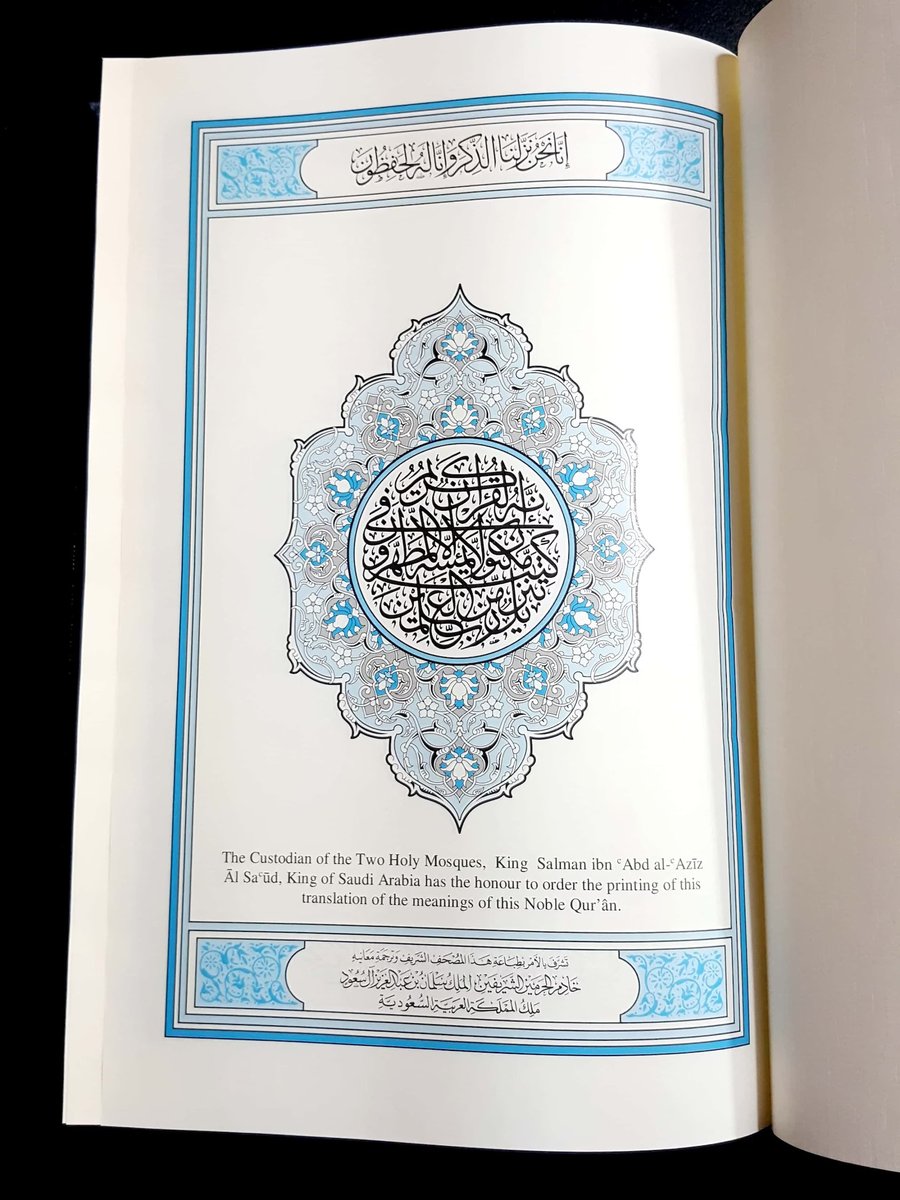 إنا نحن نزلنا الذكر وإنا له لحفظون
إنه لقرآن كريم
في كتب مكنون لا يمسه إلا المطهرون
تنزيل من رب العلمين
The Custodian of the Two Holy Mosques, King Salman ibn ʿAbd al-ʿAzīz
Āl Saʿūd, King of Saudi Arabia has the honour to order the printing of this
translation of the meanings of this Noble Qur’ân.
تشرف بالأمر بطباعة هذا المصحف الشريف وترجمة معانيه
خادم الحرمين الشريفين الملك سلمان بن عبد العزيز آل سعود
ملك المملكة العربية السعودية